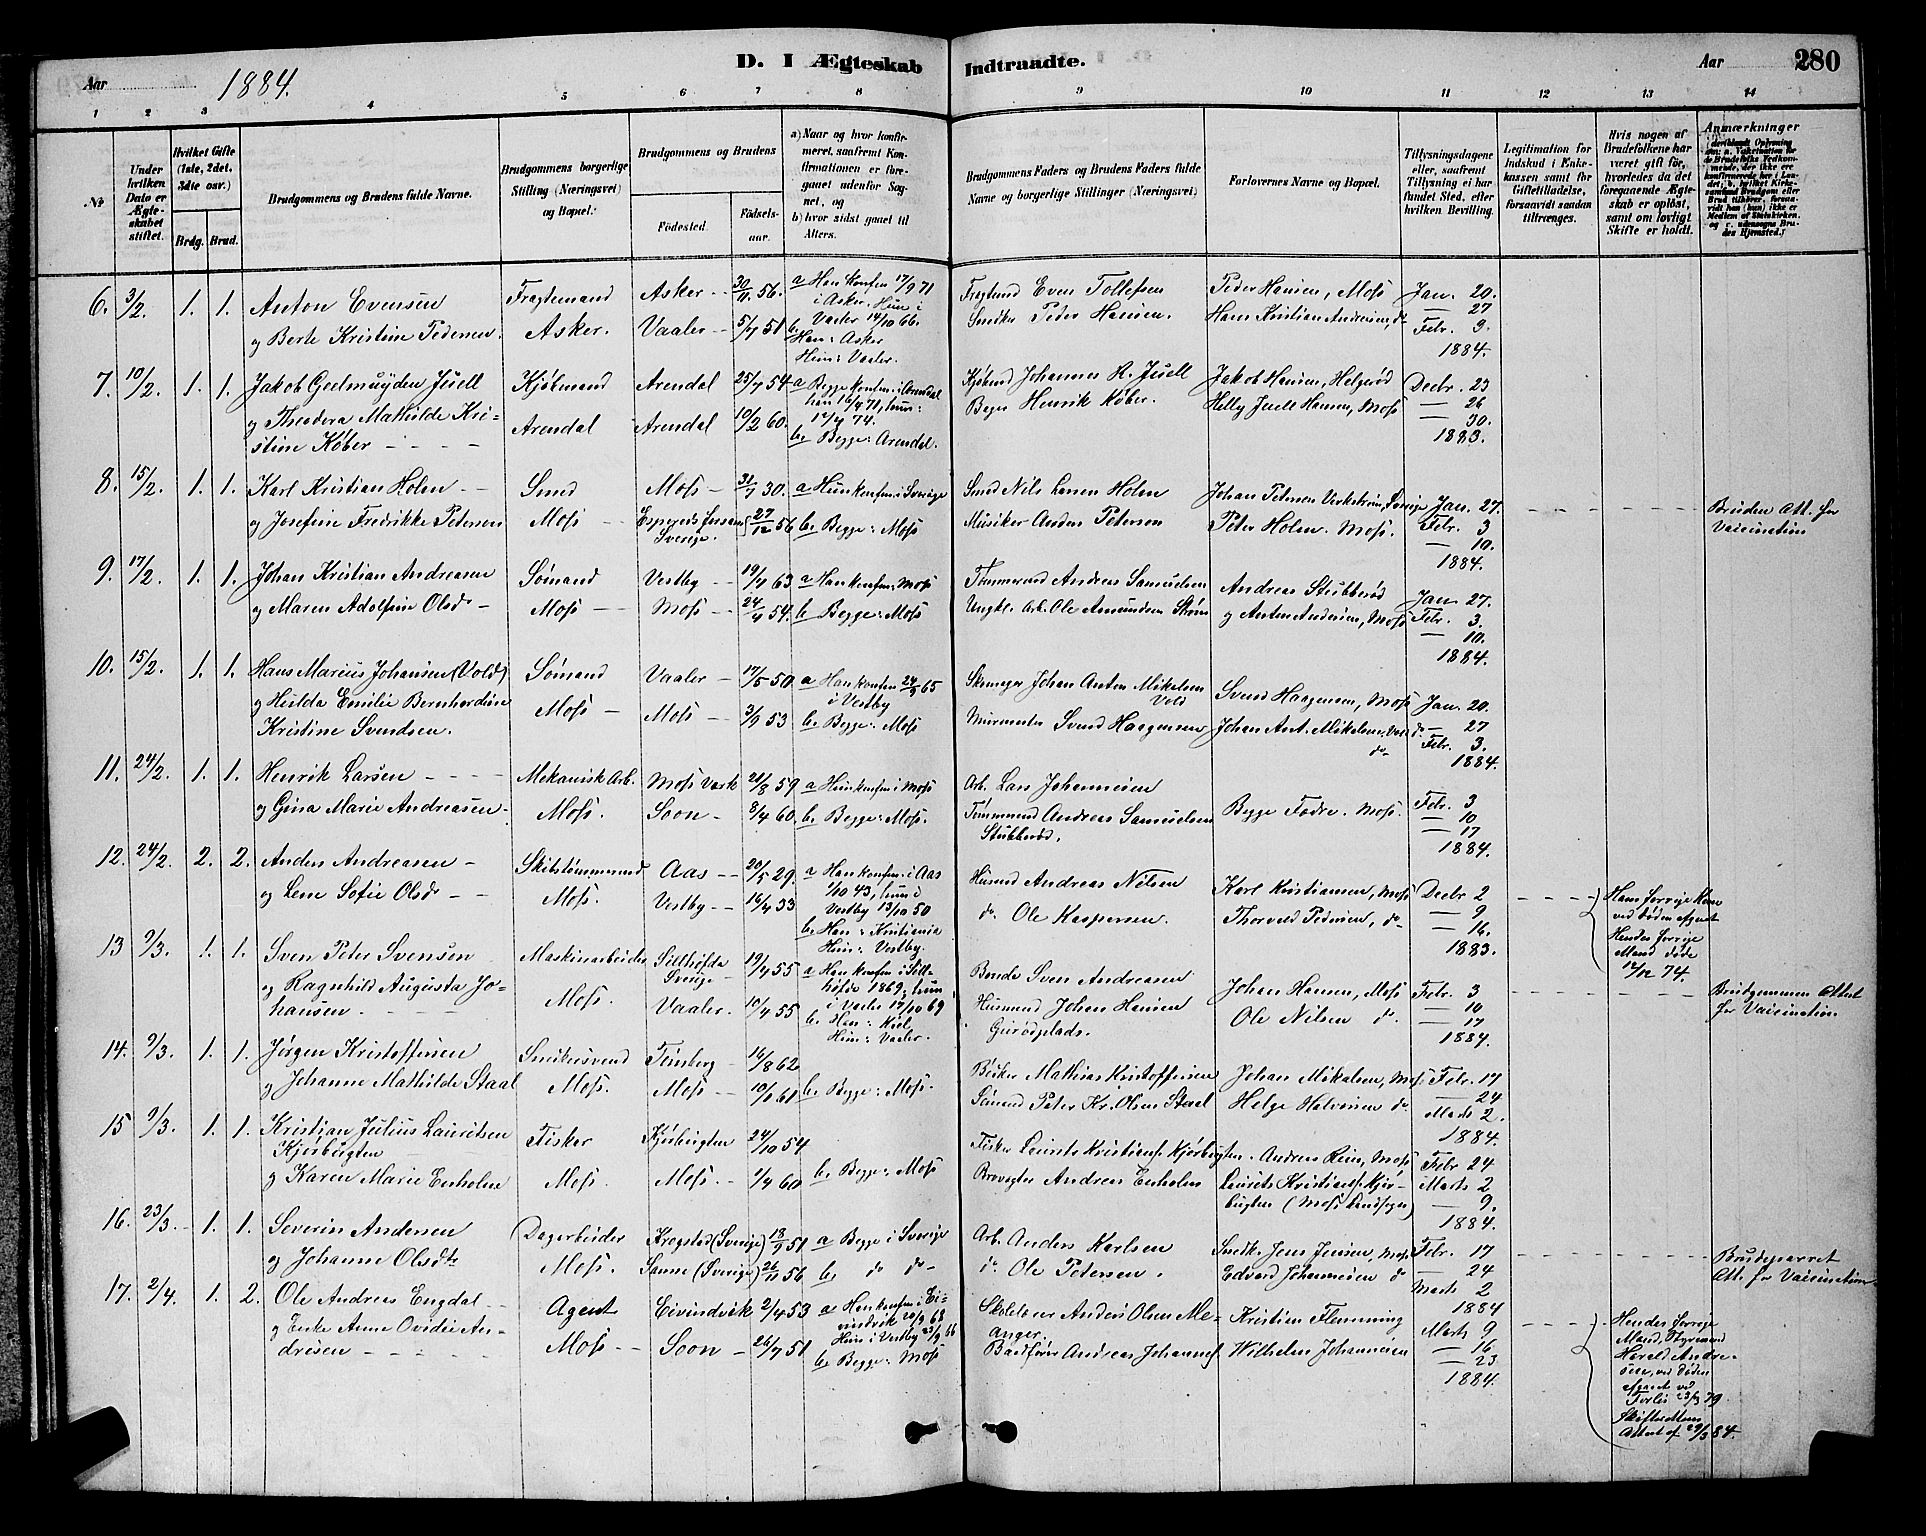 Aar 1884.
D. I Ægteskab Indtraadte.
Aar 280
1 2 3 4 5 6 7 8 9 10 11 12 13 14
No
Under hvilken Dato er Ægteskabet stiftet.
Hvilket Gifte (1ste, 2det, 3dte osv.)
Brdg. Brud.
Brudgommens og Brudens fulde Navne.
Brudgommens borgerlige Stilling (Næringsvei) og Bopæl.
Brudgommens og Brudens
Fødested. Fødselsaar.
a) Naar og hvor konfirmeret, saafremt Konfirmationen er foregaaet udenfor Sognet, og
b) hvor sidst gaaet til Alters.
Brudgommens Faders og Brudens Faders fulde Navne og borgerlige Stillinger (Næringsvei)
Forlovernes Navne og Bopæl.
Tillysningsdagene eller, saafremt Tillysning ei har fundet Sted, efter hvilken Bevilling.
Legitimation for Indskud i Enkekassen samt for Giftetilladelse, forsaavidt saadan tiltrænges.
Hvis nogen af Brudefolkene har været gift før, hvorledes da det foregaaende Ægteskab er opløst, samt om lovligt Skifte er holdt.
Anmærkninger
6. 3/2 1. 1. Anton Evensen Fragtemand Asker 30/11 56. a Han konfm 17/9 71 i Asker. Hun i Vaaler 14/10 66. Fragtmd Even Tollefsen Peder Hansen, Moss Jan. 20.
og Berte Kristine Pedersen. Asker. Vaaler 5/7 51 b. Han: Asker Hun: Vaaler. Snedker Peder Hansen. Hans Kristian Andresen, do — 27 Febr. 9. 1884.
7. 10/2. 1. 1. Jakob Geelmuyden Juell Kjøbmand Arendal 25/7 54. a Begge konfm. i Arendal han 16/4 71, hun: 12/4 74. Kjøbmd Johannes R. Juell Jakob Hansen, Helgerød Decbr. 23
og Theodora Mathilde Kristine Køber Arendal Arendal 10/2 60. b. Begge: Arendal. Henrik Køber. Helly Juell Hansen, Moss — 26 — 30. 1883.
8. 15/2. 1. 1. Karl Kristian Holen Smed Moss 31/7 30. a Hun konfm. i Sverige Smed Nils Larsen Holen Jan. 27.
og Josefine Fredrikke Petersen Moss Sverige. 27/12 56 b. Begge: Moss Musiker Anders Petersen Peter Holen. Moss. Febr. 3 — 10. 1884. Bruden Att. for Vaccination
9. 17/2. 1. 1. Johan Kristian Andreasen Sømand Vestby 19/7 63. a Han konfm. Moss Tømmermd Andreas Samuelsen Andreas Stubberød Jan. 27.
og Maren Adolfine Olsdr Moss Moss 24/4 54. b. Begge: Moss Ungkl. Arb. Ole Amundsen Strøm og Anton Andersen, Moss Febr. 3. — 10. 1884.
10. 15/2. 1. 1. Hans Marius Johansen (Vold) Sømand Vaaler 17/5 50 a Han konfm 24/9 65 i Vestby Johan Anton Mikelsen Vold Svend Haagensen, Moss Jan. 20.
og Hilda Emilie Bernhardine Kristine Svendsen. Moss Moss 3/9 53 b. Begge: Moss Murmester Svend Haagensen Johan Ant. Mikelsen Vold do — 27 Febr. 3. 1884.
11. 24/2. 1. 1. Henrik Larsen Mekanisk Arb. Moss Værk 21/8 59 a Hun konfm. i Moss Arb. Lars Johannesen Begge Fædre. Moss. Febr. 3
og Gina Marie Andreasen Moss. Soon 8/4 60. b. Begge: Moss. Tømmermd Andreas Samuelsen Stubberød. — 10 — 17 1884.
12. 24/2. 2. 2. Anders Andreasen Skibstømmermd Aas 20/5 29. a Han konfm. i Aas 1/10 43, hun i Vestby 13/10 50 Husmd Andreas Nilsen Karl Kristiansen, Moss Decbr 2
og Lene Sofie Olsdr Moss. Vestby 16/4 33 b. Han: Kristiania Hun: Vestby. do Ole Kaspersen. Thorvald Pedersen, do — 9 — 16. 1883. Hans forrige Kone ved Døden afgaaet Hendes forrige Mand døde 12/12 74.
13 9/3. 1. 1. Sven Peter Svensen Maskinarbeider Sillhöfda Sverige 19/4 55 a Han konfm. i Sillhöfda 1869; hun i Vaaler 17/10 69 Bonde Sven Andreasen Johan Hansen, Moss Febr. 3
og Ragnhild Augusta Johansen. Moss. Vaaler. 10/4 55 b. Han: Kiel, Hun: Vaaler. Husmand Johan Hansen Ole Nilsen do. — 10 — 17 1884. Brudgommen Attest for Vaccination
14. 9/3. 1. 1. Jørgen Kristoffersen Snedkersvend Tønsberg 16/8 62 Bødker Mathias Kristoffersen Johan Mikalsen, Moss Febr. 17
og Johanne Mathilde Staal Moss. Moss 10/1 61 b. Begge: Moss. Sømand Peter Kr. Olsen Staal Helge Halvorsen do. — 24 Marts 2. 1884.
15 9/3. 1. 1. Kristian Julius Lauritsen Kjørbugten Fisker Kjørbugten 24/10 54 Fisker Laurits Kristians. Kjørbugten. Andreas Reim, Moss Febr 24
og Karen Marie Enholm Moss. Moss. 1/4 60 b. Begge: Moss Brovogter Andreas Enholm Laurits Kristians. Kjørbugten (Moss Landsogn) Marts 2 — 9. 1884.
16. 23/3. 1. 1. Severin Andersen Dagarbeider Krogstad (Sverige) 18/9 51 a Begge i Sverige Arb. Anders Karlsen Snedk. Jens Jensen, Moss Febr. 17
og Johanne Olsdtr Moss. Sanne (Sverige) 26/11 56 b. do do do. Ole Petersen. Edvard Johannesen do — 24 Marts 2 1884 Brudeparret Att. for Vaccination
17. 2/4. 1. 2. Ole Andreas Engdal Agent Eivindvik 2/4 53 a Han konfm. i Eivindvik 20/9 68 Hun i Vestby 23/9 66 Anders Olsen Meanger. Kristian Flemming Marts 9
og Enke Anne Ovidie Andresen Moss Soon 26/7 51 b. Begge: Moss Andreas Johannes Wilhelm Johannesen — 16 — 23 1884. Hendes forrige Mand, Styrmand Harald Andresen, ved Døden afgaaet ved Forlis 23/3 79. Skifterettens Attest af 29/3 84.